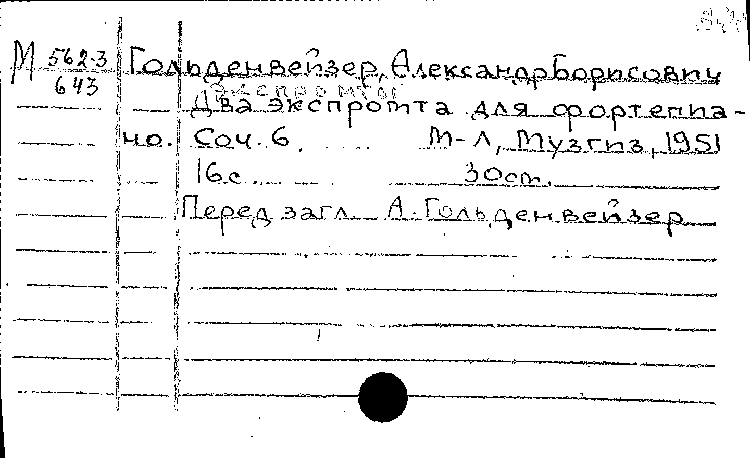 М 562-3 Гольденвейзер, Александр Борисович
643 Экспромты
Два экспромта для фортепиа-
но. Соч. 6. М-Л, Музгиз, 1951
16с. 30см.
Перед загл. А. Гольденвейзер